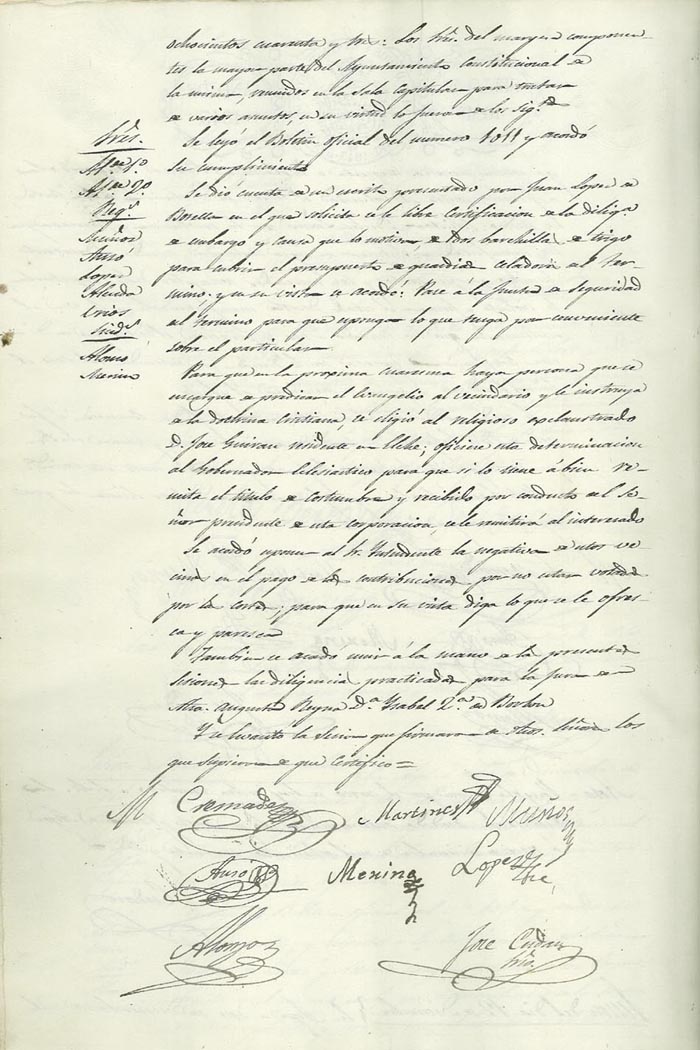 ochocientos cuarenta y tres: Los Sres. del margen componen-
tes la mayor parte del Ayuntamiento Constitucional de
la misma, reunidos en la Sala Capitular para tratar
de varios asuntos, en su virtud lo fueron de los sigtes
Sres.
Alcde 1º
Alcde 2º
Regs
Muños
Ausó
Lopez
Almida
Erios
Sinds
Alonso
Merino
Se leyó el Boletin oficial del numero 1011 y acordó
su cumplimiento
Se dió cuenta de un escrito presentado por Juan Lopez de
Botella en el que solicita se le libre certificacion de la diliga
de embargo y causa que lo motiva, de dos barchillas de trigo
para cubrir el presupuesto de guardias celadores del ter-
mino: y en su vista se acordó: Pase á la Junta de seguridad
del termino para que esponga lo que tenga por conveniente
sobre el particular
Para que en la proxima cuaresma haya persona que se
encargue de predicar el Evangelio al vecindario y le instruya
de la dotrina cristiana, se eligió al religioso exclaustrado
D. Jose Guirau residente en Elche; oficiese esta determinacion
al Gobernador Eclesiastico para que si lo tiene á bien re-
mita el titulo de costumbre y recibido por conducto del Se-
ñor presidente de esta corporacion, se le remitirá al interesado
Se acordó esponer al Sr. Yntendente la negativa de estos ve-
cinos en el pago de las contribuciones por no estar votadas
por las Cortes; para que en su vista diga lo que se le ofres-
ca y paresca
Tambien se acordó unir á la mano de las presentes
sesiones las diligencias practicadas para la Jura de
Ntra. Augusta Reyna Da Ysabel 2a de Borbon
Y se levantó la Sesion que firmaron de dhos. Señores los
que supieron de que certifico=
Cremades
Martines
Muños
Ausó
Merino
Lopez
Alonso
Jose
Srio.